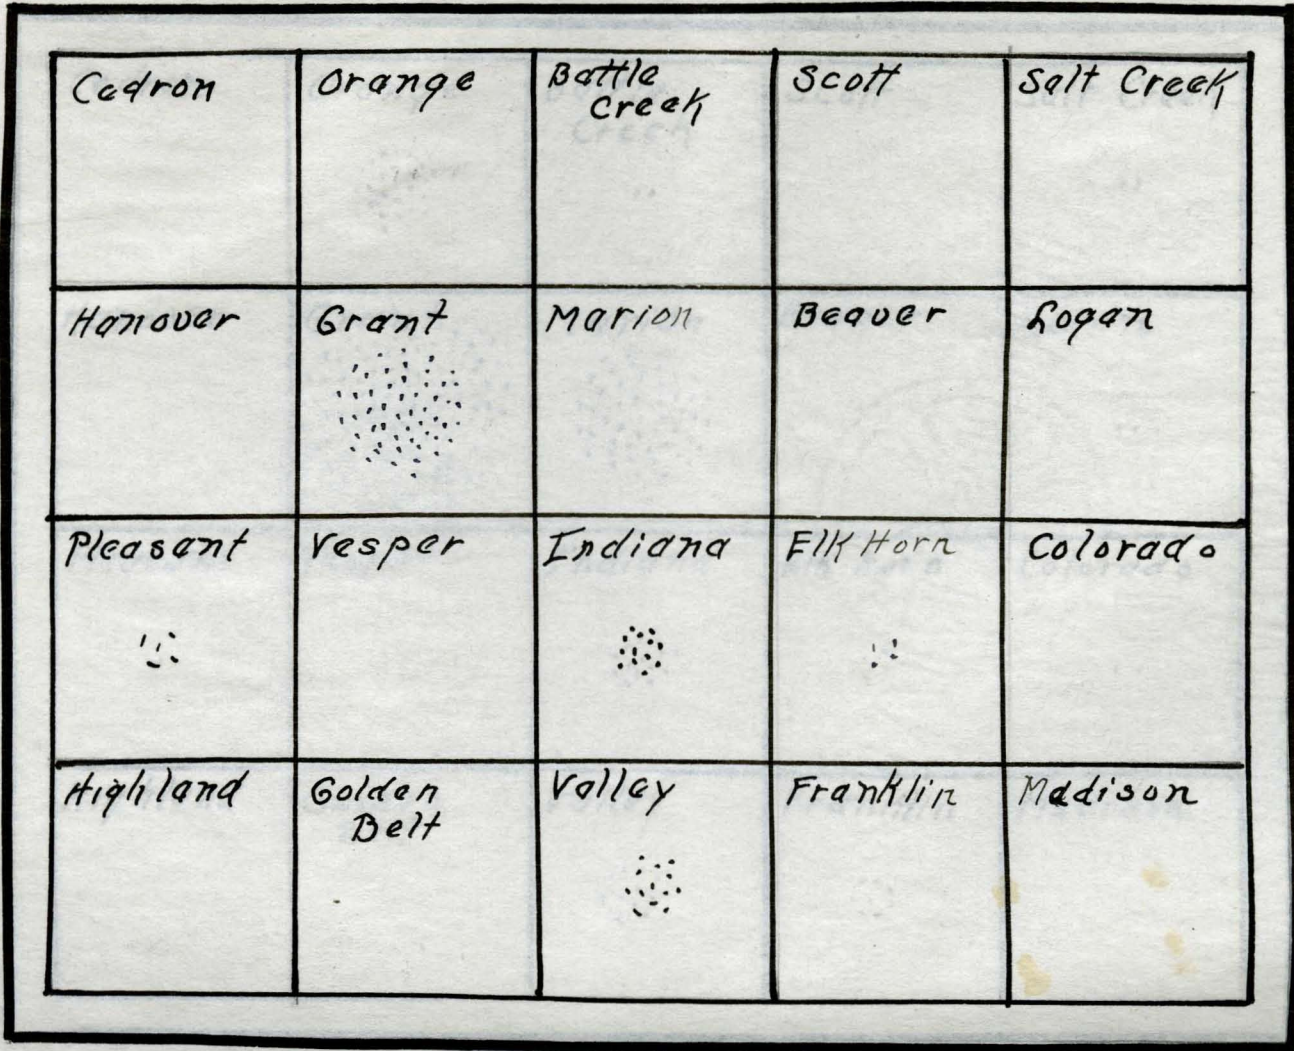 Cedron
Orange
Battle
Creek
Scott
Salt Creek
Hanover
Grant
Marion
Beaver
Logan
Pleasant
Vesper
Indiana
Elk Horn
Colorado
Highland
Golden
Belt
Valley
Franklin
Madison